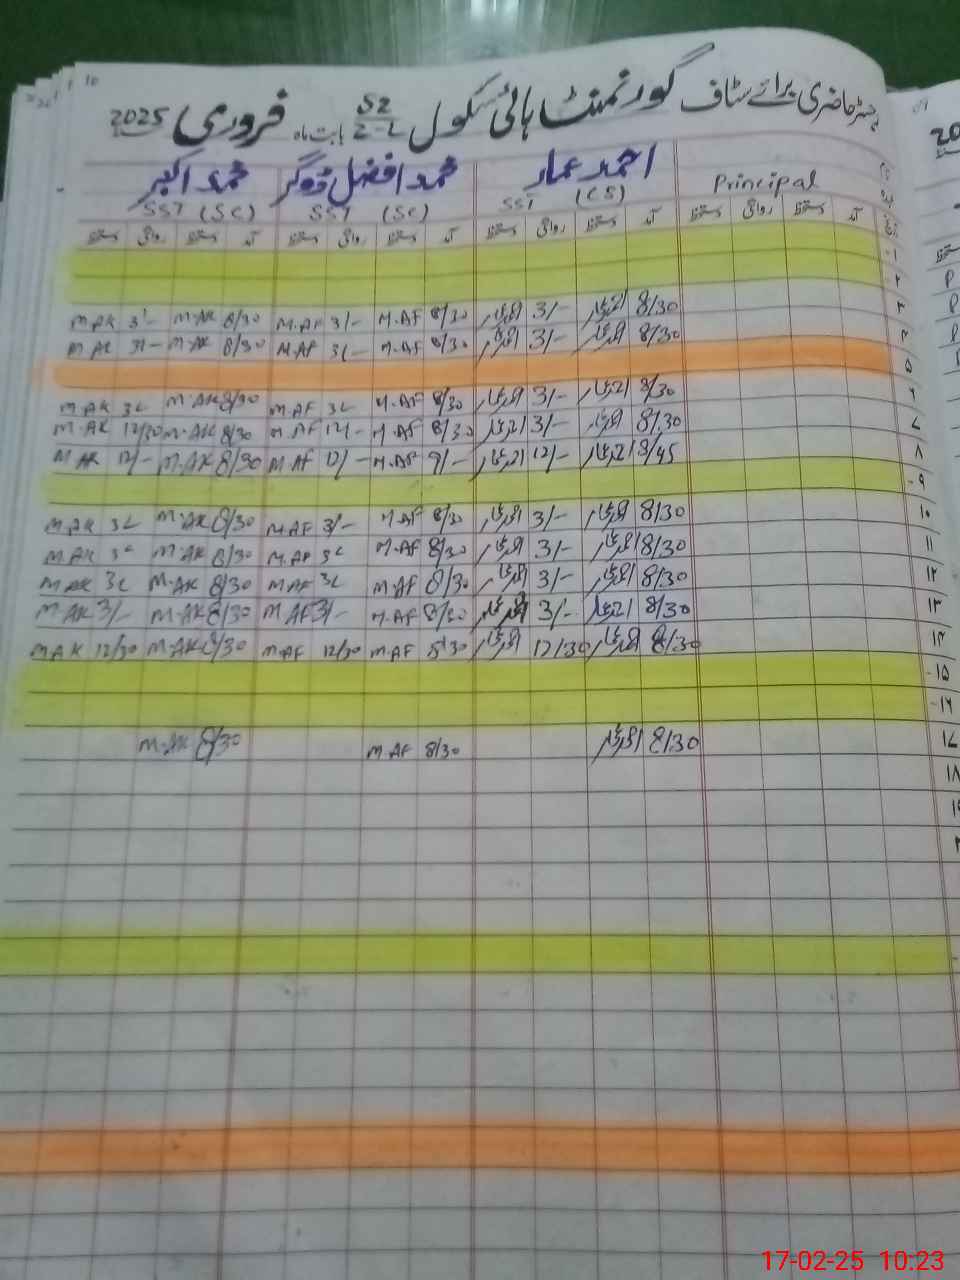 رجسٹر حاضری برائے سٹاف گورنمنٹ ہائی سکول 52/2-L بابت ماہ فروری 2025
Principal احمد عمار محمد افضل ڈوگر محمد اکبر
SST (CS) SST (SC) SST (SC)
آمد دستخط روانگی دستخط آمد دستخط روانگی دستخط آمد دستخط روانگی دستخط آمد دستخط روانگی دستخط
۱
۲
M.AK 3/- M.AK 8/30 M.AF 3/- M.AF 8/30 3/- 8/30 ۳
M.AK 3/- M.AK 8/30 M.AF 3/- M.AF 8/30 3/- 8/30 ۴
۵
M.AK 3/- M.AK 8/30 M.AF 3/- M.AF 8/30 3/- 8/30 ۶
M.AK 12/30 M.AK 8/30 M.AF 12/- M.AF 8/30 3/- 8/30 ۷
M.AK 12/- M.AK 8/30 M.AF 12/- M.AF 9/- 12/- 8/45 ۸
۹
M.AK 3/- M.AK 8/30 M.AF 3/- M.AF 8/30 3/- 8/30 ۱۰
M.AK 3/- M.AK 8/30 M.AF 3/- M.AF 8/30 3/- 8/30 ۱۱
M.AK 3/- M.AK 8/30 M.AF 3/- M.AF 8/30 3/- 8/30 ۱۲
M.AK 3/- M.AK 8/30 M.AF 3/- M.AF 8/30 3/- 8/30 ۱۳
M.AK 12/30 M.AK 8/30 M.AF 12/30 M.AF 8/30 12/30 8/30 ۱۴
۱۵
۱۶
M.AK 8/30 M.AF 8/30 8/30 ۱۷
۱۸
17-02-25 10:23